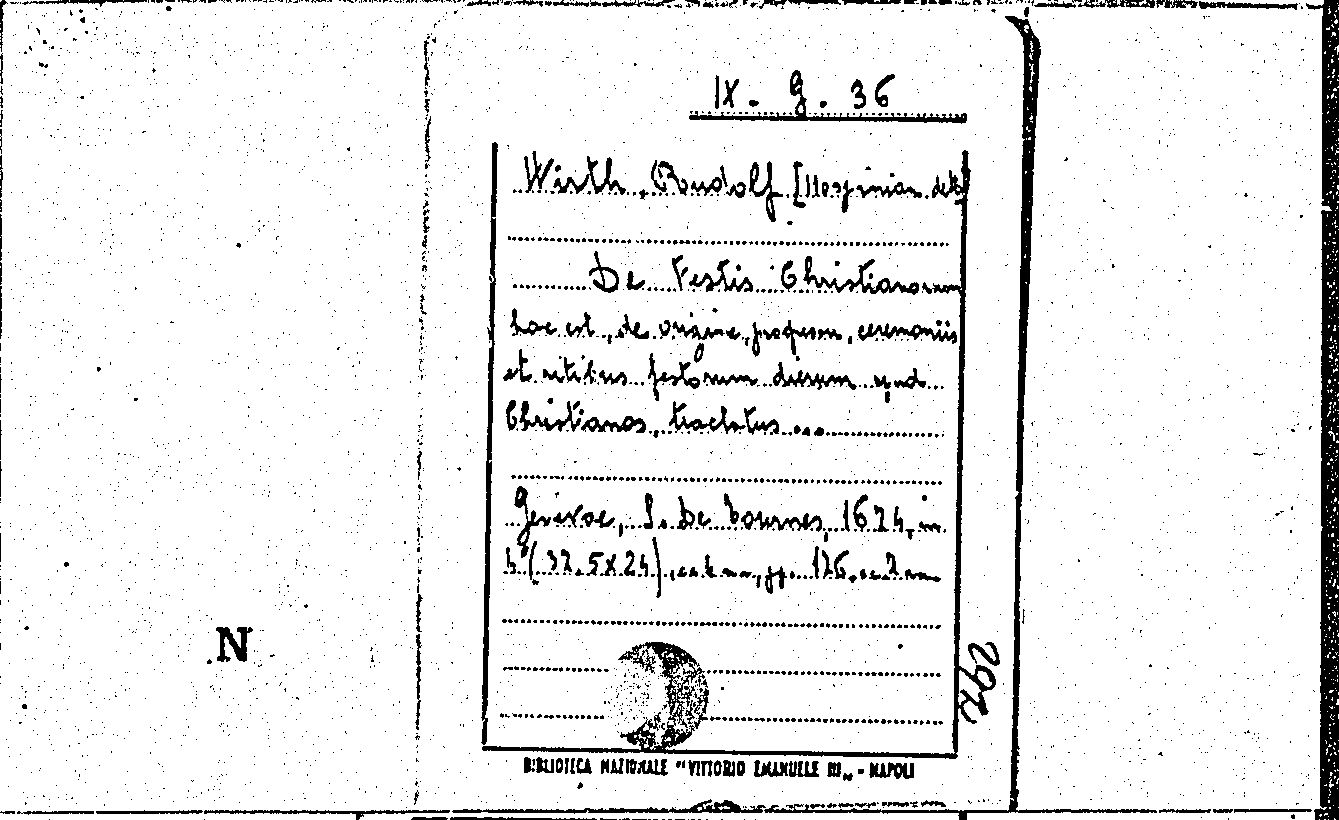 IX. G. 36
Wirth, Rudolf [Hospinian detto]
De Festis Christianorum
hoc est, de origine, progressu, ceremoniis
et ritibus festorum dierum apud
Christianos, tractatus...
Genevae, S. De Tournes, 1674, in
4° (32.5x24), cc. 6 nn, pp. 176, cc. 2 nn
292
N
BIBLIOTECA NAZIONALE "VITTORIO EMANUELE III„ - NAPOLI